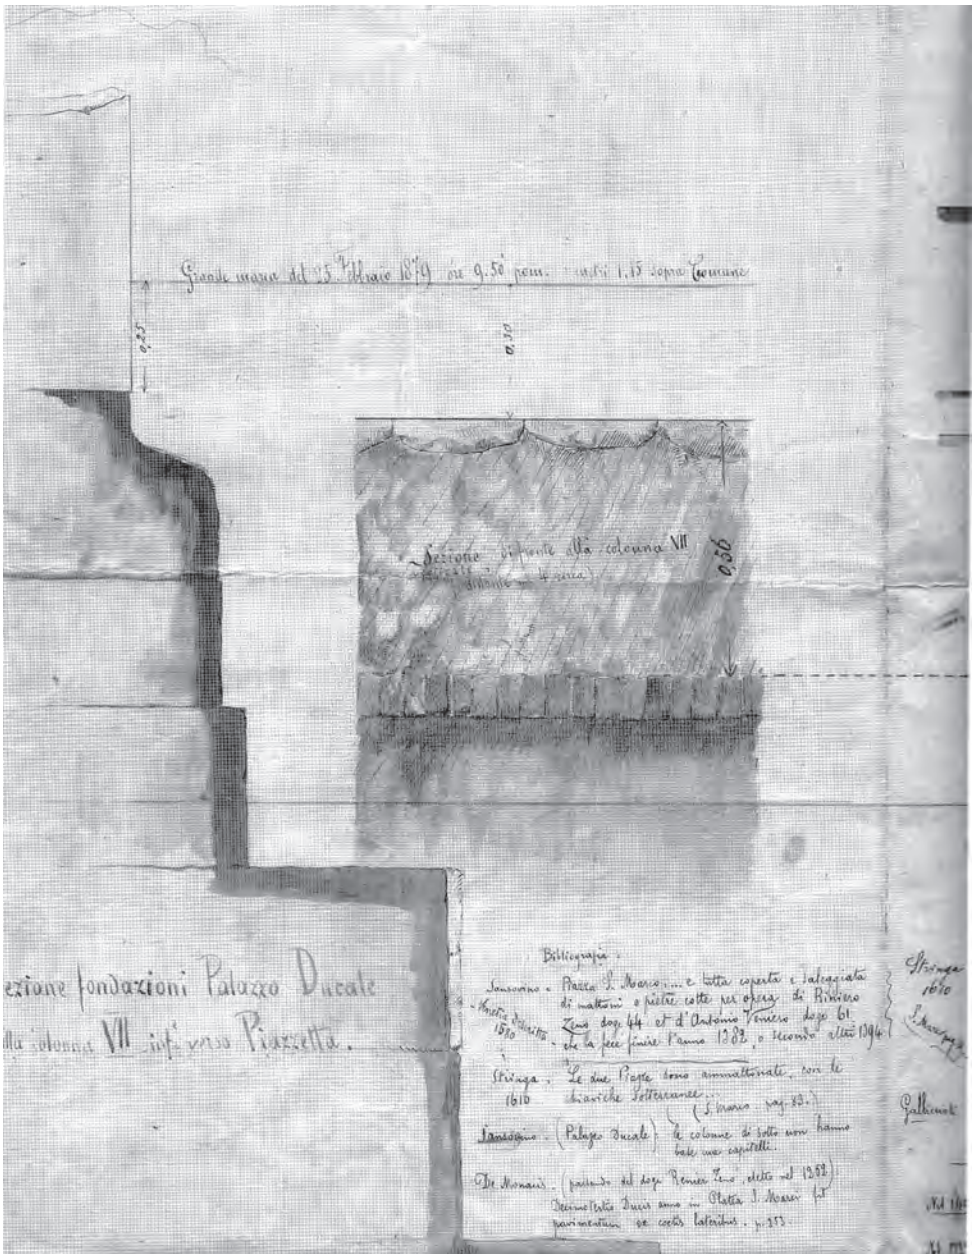 Grande marea del 25 Febbraio 1879 ore 9.50 pom. metri 1.15 sopra Comune
0,25
0,30
Sezione di fronte alla colonna VII
0,56
ezione fondazioni Palazzo Ducale
alla colonna VII inf. verso Piazzetta.
Bibliografia:
Sansovino - Piazza S. Marco .... è tutta coperta e saleggiata
di mattoni o pietre cotte per opera di Riniero
Zeno doge 44 et d'Antonio Veniero doge 61
che la fece finire l'anno 1382, o secondo altri 1394
Venetia descritta
1580
Stringa. Le due Piazze sono ammattonate, con le
1610 chiaviche sotterranee...
(S. Marco pag. 83.)
Sansovino. (Palazzo Ducale) le colonne di sotto non hanno
base ma capitelli.
De Monacis. (parlando del doge Renier Zeno, eletto nel 1252)
Decimotertio Ducis anno in Platea S. Marci fit
pavimentum ex coctis lateribus. p. 253.
Stringa
1610
S. Marco pag.